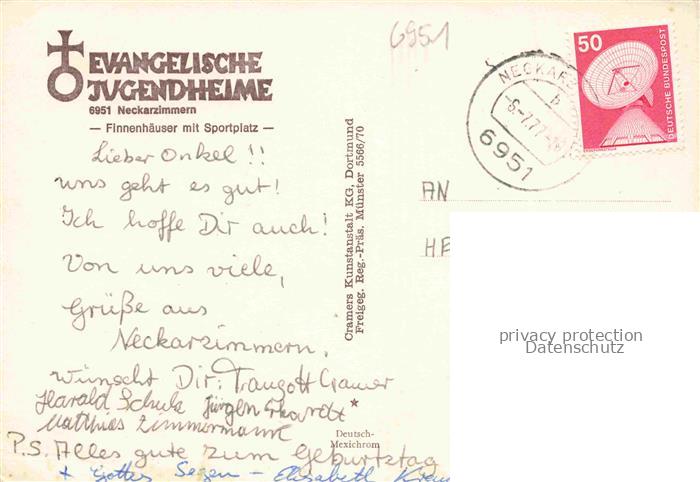 6951
EVANGELISCHE
JUGENDHEIME
6951 Neckarzimmern
— Finnenhäuser mit Sportplatz —
Lieber Onkel!!
uns geht es gut!
Ich hoffe Dir auch!
Von uns viele,
Grüße aus
Neckarzimmern.
wünscht Dir: Traugott Cramer
Harald Schulz Jürgen *
Matthias Zimmermann
P.S. Alles gute zum Geburtstag
+ Gottes Segen – Elisabeth
Deutsch-
Mexichrom
Cramers Kunstanstalt KG, Dortmund
Freigeg. Reg.-Präs. Münster 5566/70
NECKARZ
b
-6.-7.77
6951
50
DEUTSCHE BUNDESPOST
AN
privacy protection
Datenschutz